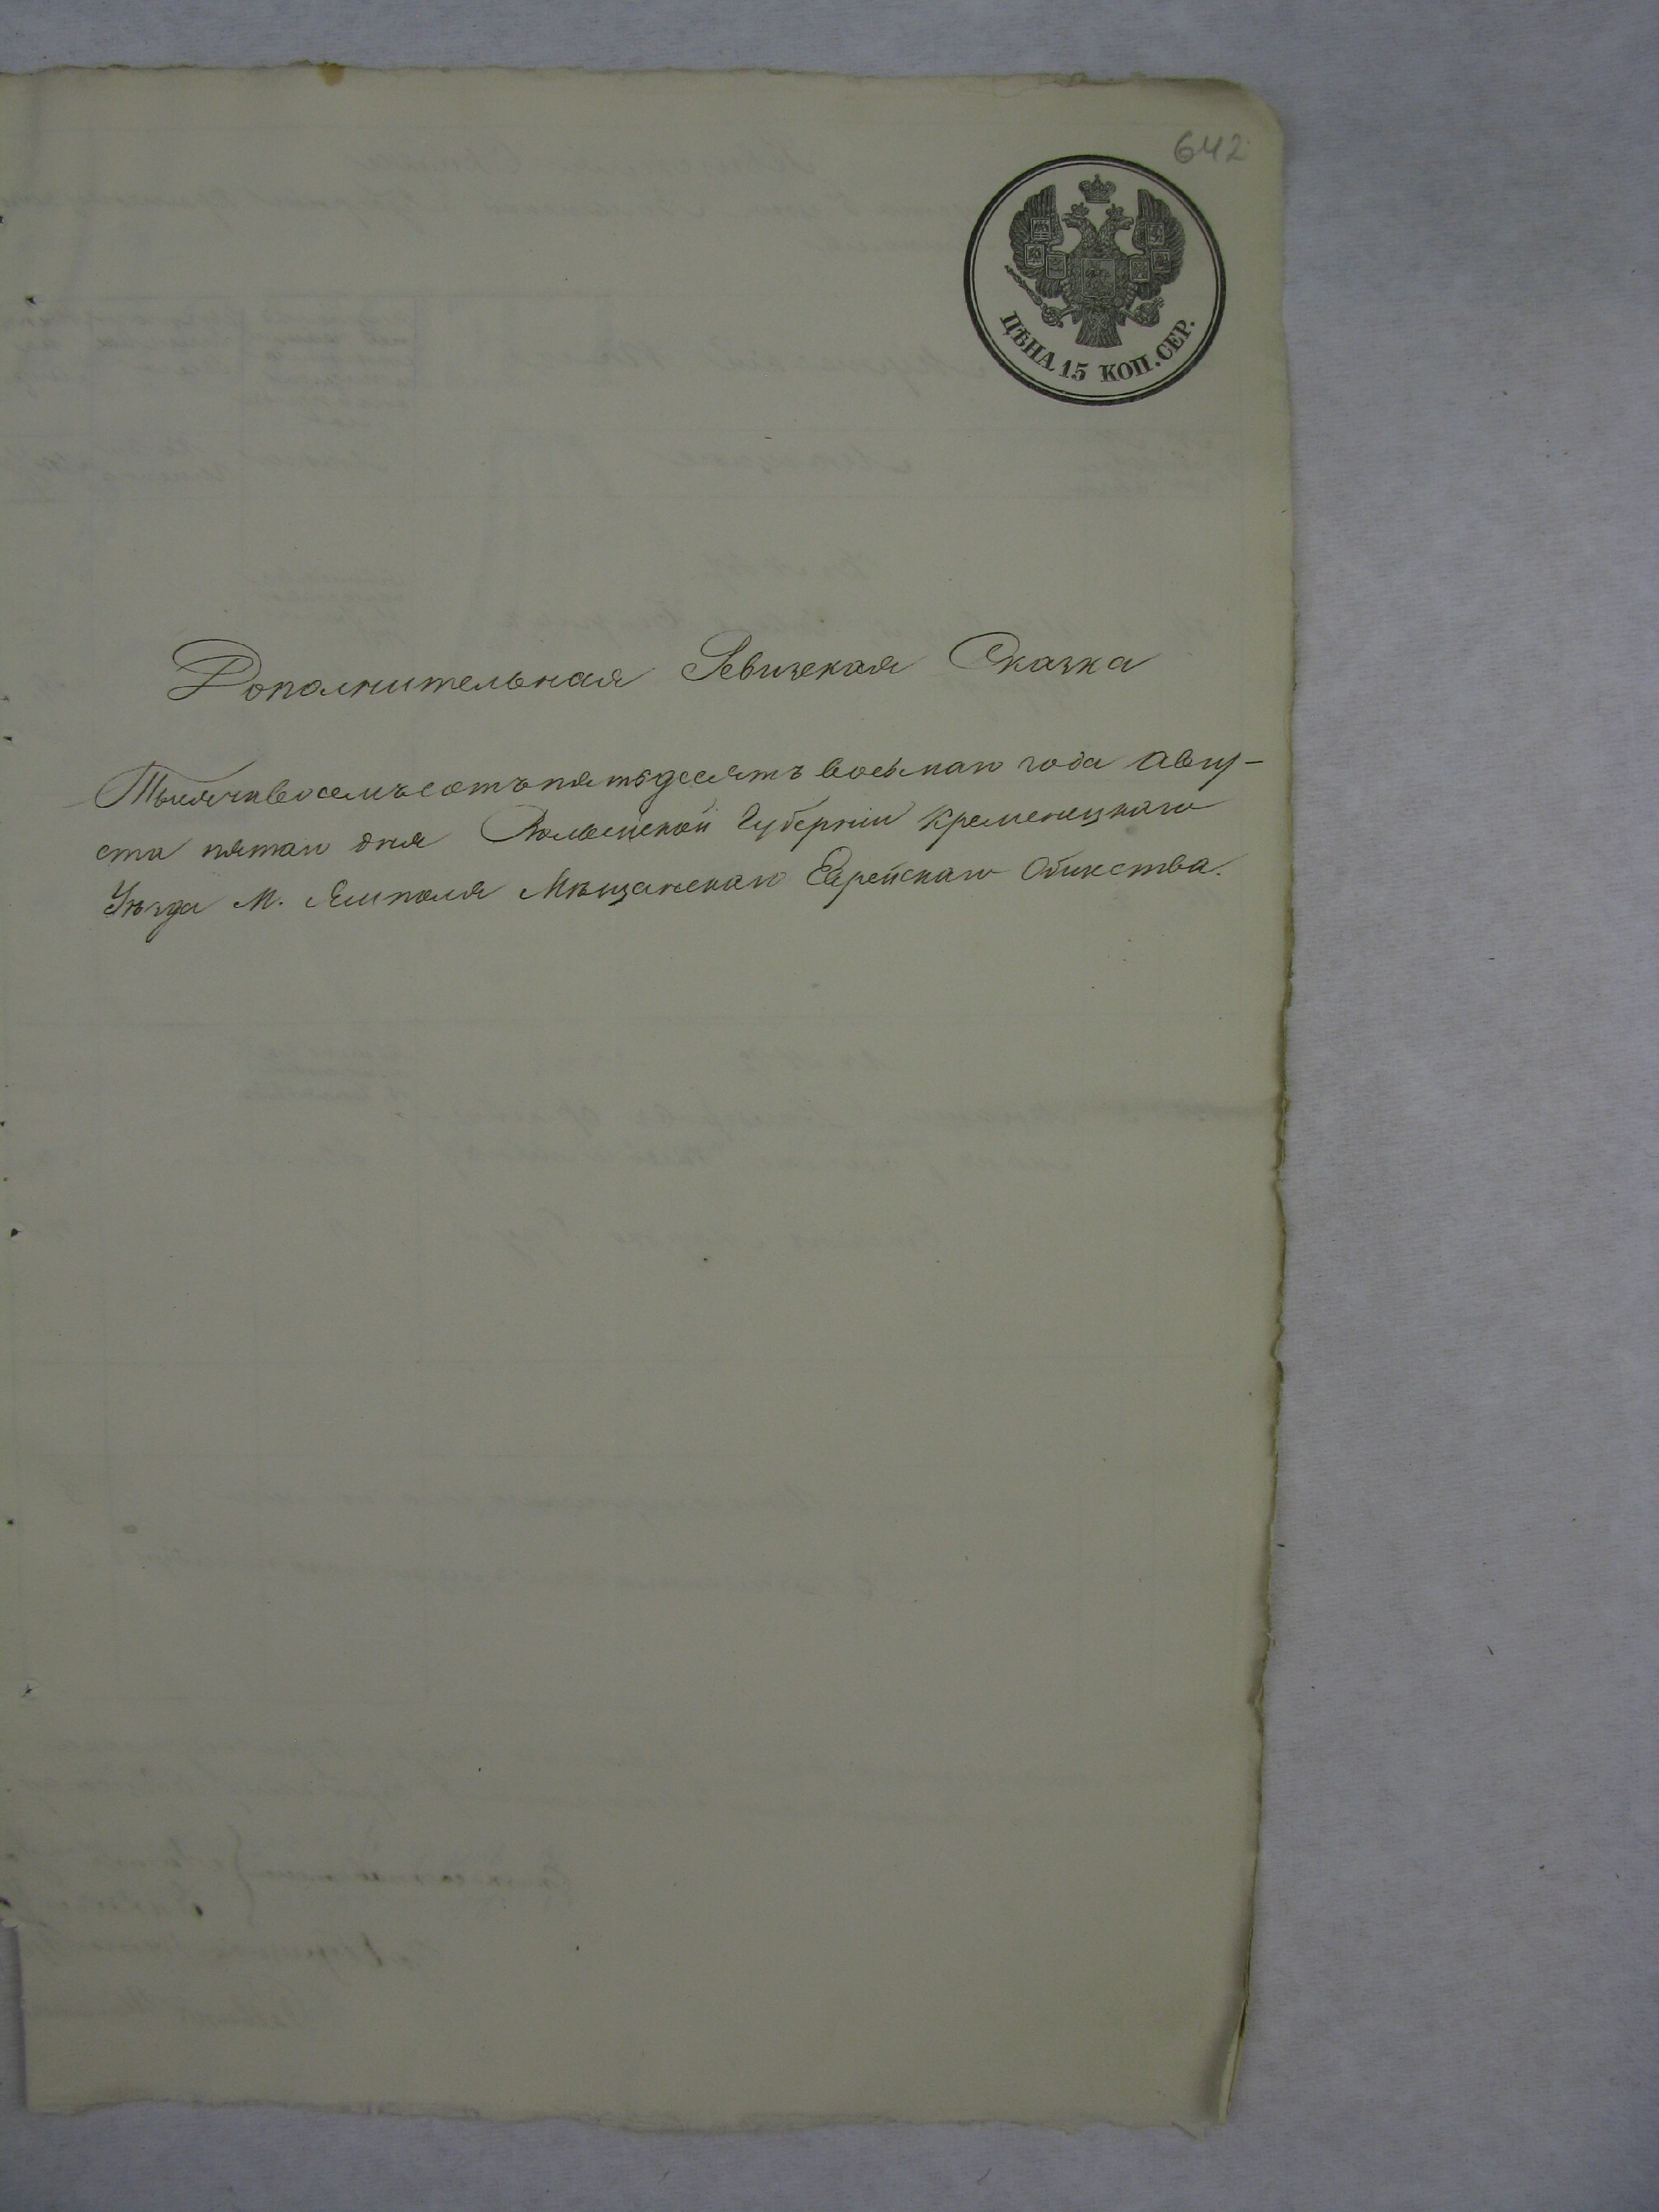 642
ЦѢНА 15 КОП. СЕР.
Дополнительная Ревизская Сказка
Тысяча восемъсотъ пятьдесятъ восьмаго года Авгу-
ста пятаго дня Волынской Губерніи Кременецкаго
Уѣзда М. Ямполя Мѣщанскаго Еврейскаго Общества.